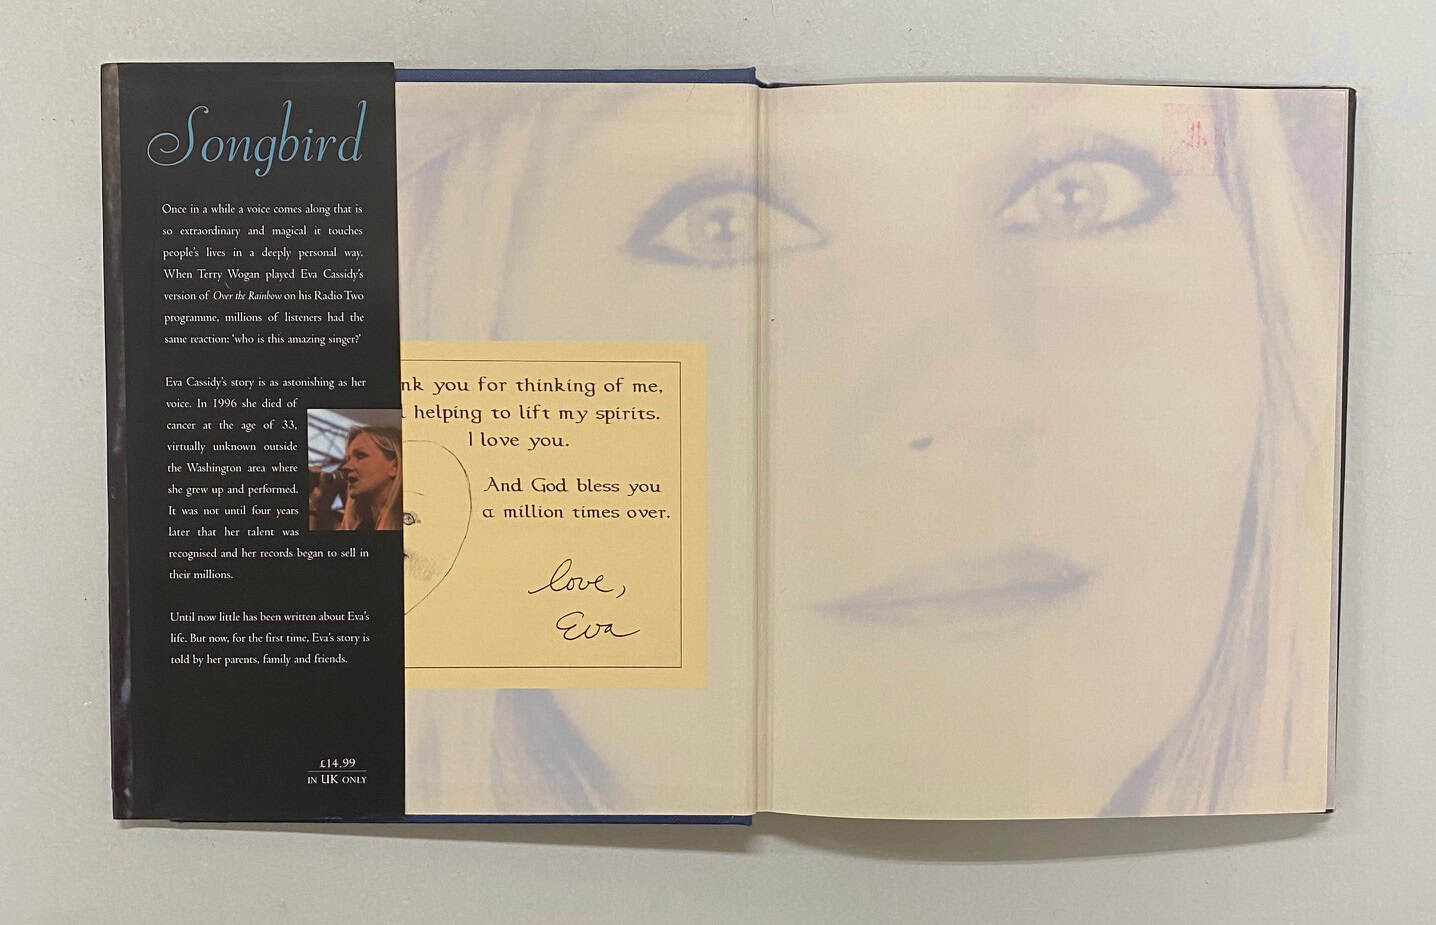 Songbird
Once in a while a voice comes along that is
so extraordinary and magical it touches
people's lives in a deeply personal way.
When Terry Wogan played Eva Cassidy's
version of Over the Rainbow on his Radio Two
programme, millions of listeners had the
same reaction: 'who is this amazing singer?'
Eva Cassidy's story is as astonishing as her
voice. In 1996 she died of
cancer at the age of 33,
virtually unknown outside
the Washington area where
she grew up and performed.
It was not until four years
later that her talent was
recognised and her records began to sell in
their millions.
Until now little has been written about Eva's
life. But now, for the first time, Eva's story is
told by her parents, family and friends.
£14.99
IN UK ONLY
nk you for thinking of me,
helping to lift my spirits.
I love you.
And God bless you
a million times over.
love,
Eva